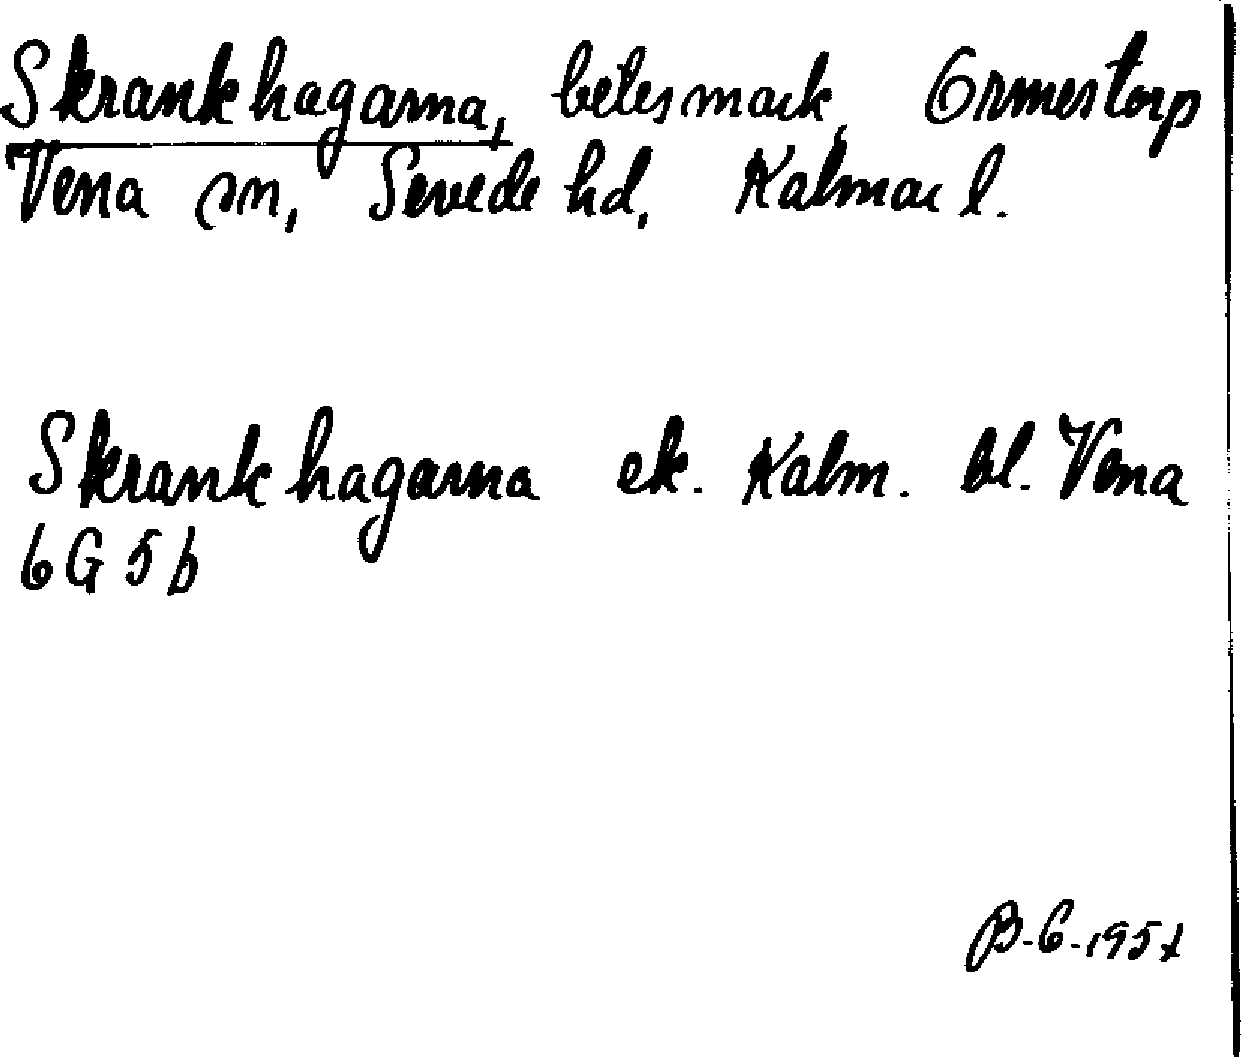 Skrankhagarna, betesmark, Ormestorp
Vena sn, Sevede hd, Kalmar l.
Skrankhagarna ek. Kalm. bl. Vena
6G5b